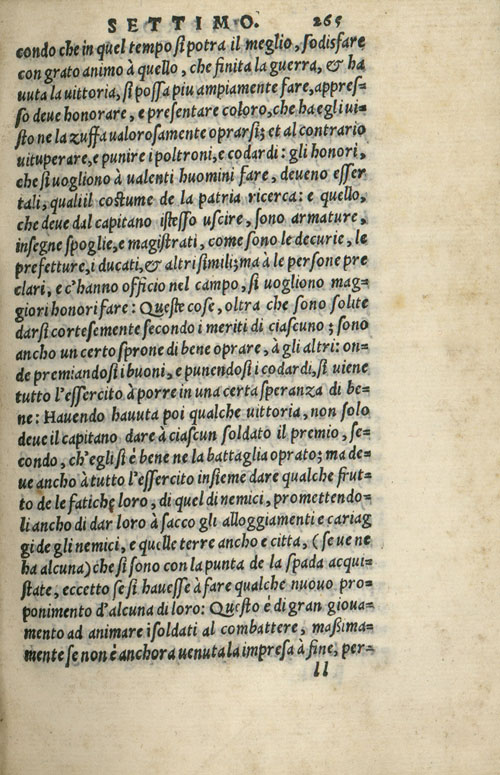 SETTIMO. 265
condo che in quel tempo si potra il meglio, sodisfare
con grato animo à quello, che finita la guerra, & ha
uuta la uittoria, si possa piu ampiamente fare, appres=
so deue honorare, e presentare coloro, che ha egli ui=
sto ne la zuffa valorosamente oprarsi; et al contrario
uituperare, e punire i poltroni, e codardi: gli honori,
che si uogliono à ualenti huomini fare, deueno esser
tali, quali il costume de la patria ricerca: e quello,
che deue dal capitano istesso uscire, sono armature,
insegne spoglie, e magistrati, come sono le decurie, le
prefetture, i ducati, & altri simili; ma à le persone pre
clari, e c'hanno officio nel campo, si uogliono mag=
giori honori fare: Queste cose, oltra che sono solite
darsi cortesemente secondo i meriti di ciascuno; sono
ancho un certo sprone di bene oprare, à gli altri: on=
de premiandosi i buoni, e punendosi i codardi, si uiene
tutto l'essercito à porre in una certa speranza di be=
ne: Hauendo hauuta poi qualche uittoria, non solo
deue il capitano dare à ciascun soldato il premio, se=
condo, ch'egli si è bene ne la battaglia oprato; ma de=
ue ancho à tutto l'essercito insieme dare qualche frut=
to de le fatiche loro, di quel di nemici, promettendo=
li ancho di dar loro à sacco gli alloggiamenti e cariag
gi de gli nemici, e quelle terre ancho e citta, (se ue ne
ha alcuna) che si sono con la punta de la spada acqui=
state, eccetto se si hauesse à fare qualche nuouo pro=
ponimento d'alcuna di loro: Questo è di gran gioua=
mento ad animare i soldati al combattere, maßima=
mente se non è anchora uenuta la impresa à fine, per=
ll